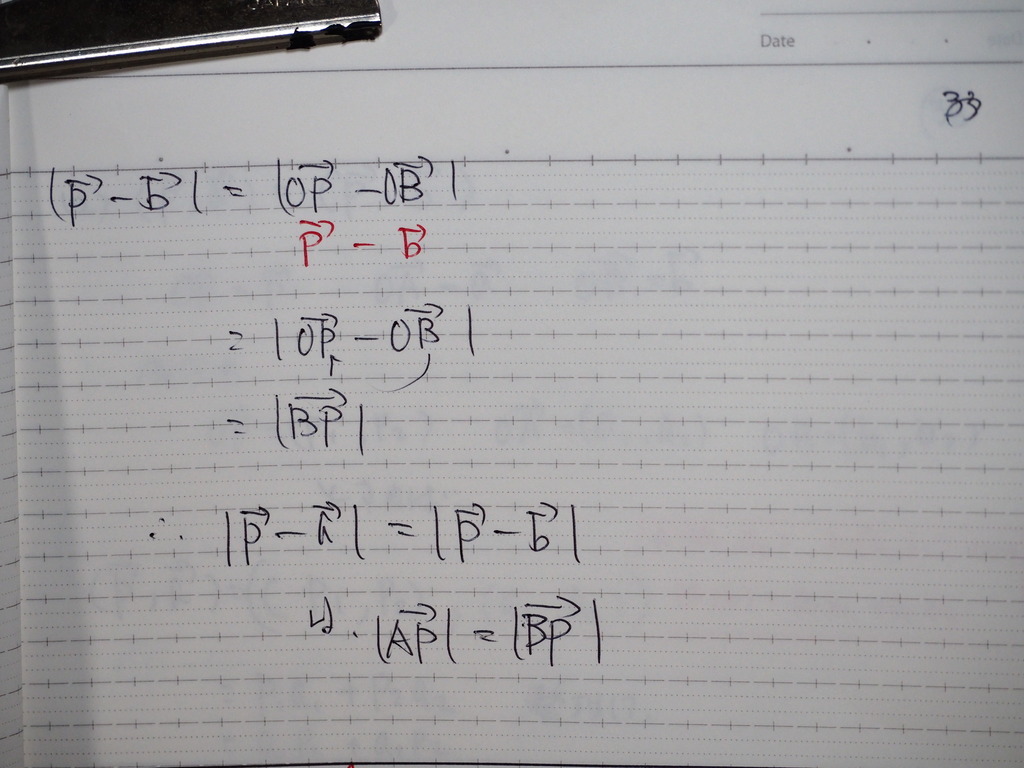 Date
33
|p⃗ - b⃗| = |OP⃗ - OB⃗|
p⃗ - b⃗
= |OP⃗ - OB⃗|
= |BP⃗|
∴ |p⃗ - a⃗| = |p⃗ - b⃗|
より. |AP⃗| = |BP⃗|